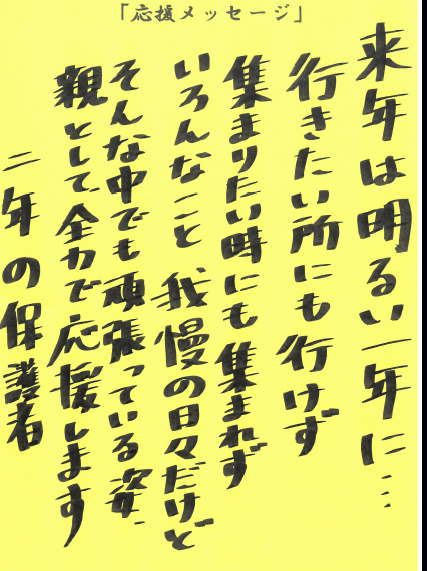 「応援メッセージ」
来年は明るい一年に…
行きたい所にも行けず
集まりたい時にも集まれず
いろんなこと 我慢の日々だけど
そんな中でも頑張っている姿、
親として、全力で応援します
二年の保護者